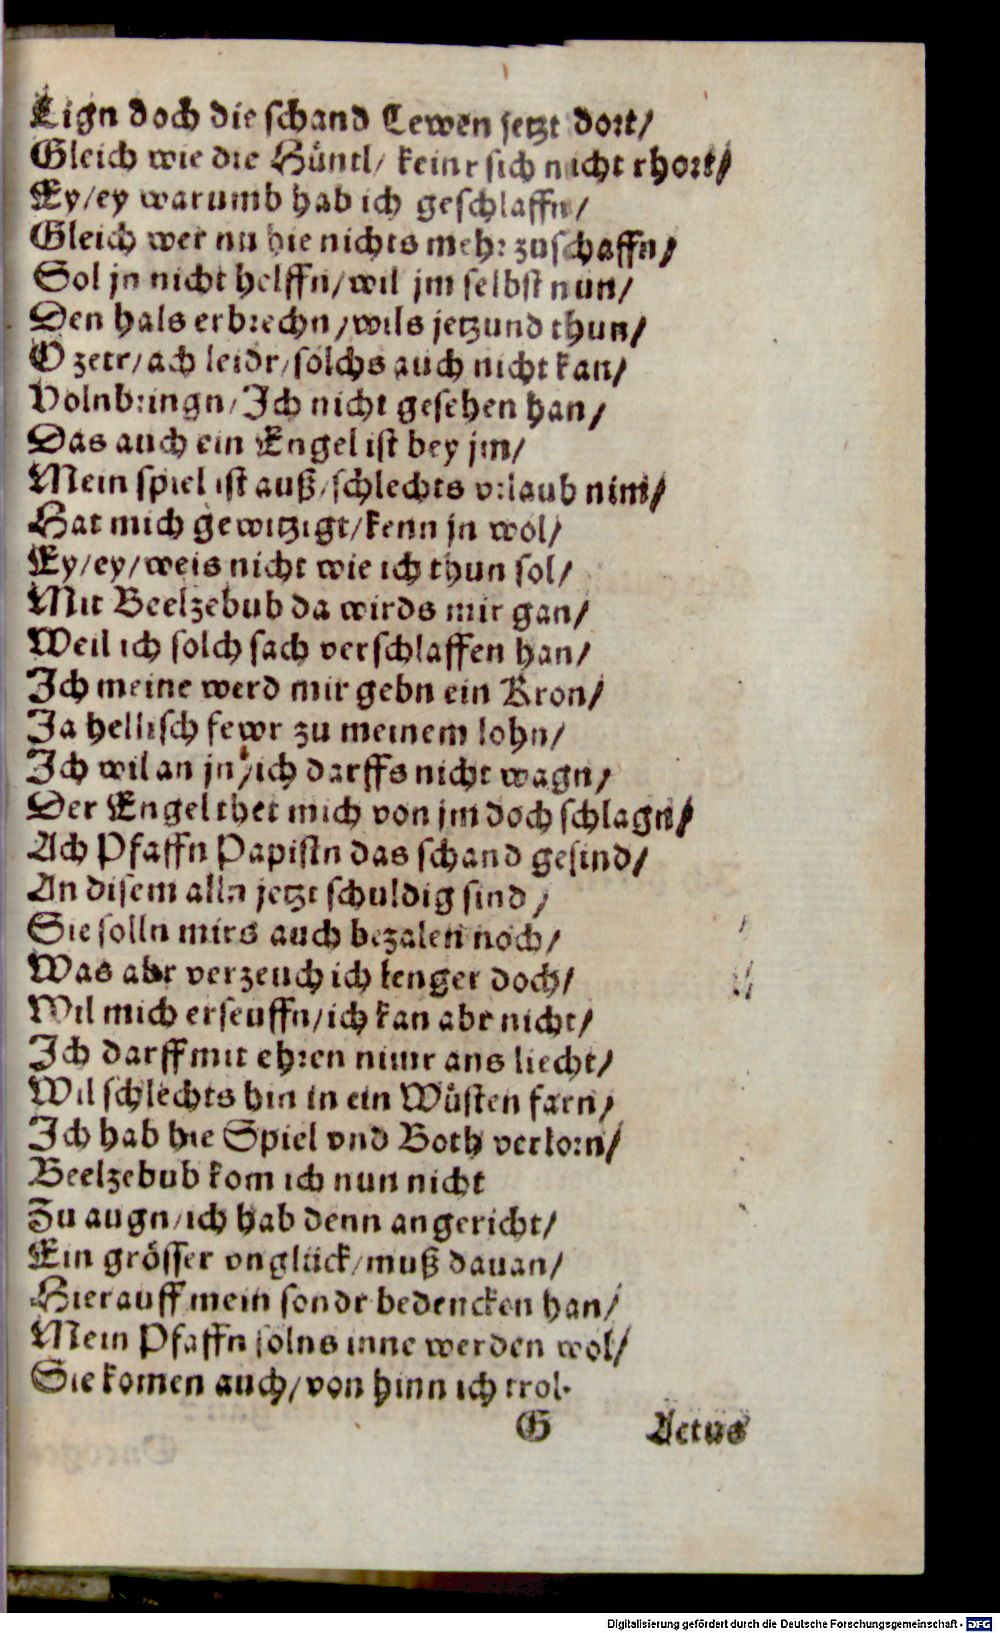 Lign doch die schand Lewen jetzt dort/
Gleich wie die Hüntl/ keinr sich nicht rhort/
Ey/ey warumb hab ich geschlaffn/
Gleich wer nu hie nichts mehr zuschaffn/
Sol jn nicht helffn/wil jm selbst nun/
Den hals erbrechn/wils jetzund thun/
O zetr/ach leidr/solchs auch nicht kan/
Volnbringn/Ich nicht gesehen han/
Das auch ein Engel ist bey jm/
Mein spiel ist auß/schlechts vrlaub nim/
Hat mich gewitzigt/kenn jn wol/
Ey/ey/weis nicht wie ich thun sol/
Mit Beelzebub da wirds mir gan/
Weil ich solch sach verschlaffen han/
Ich meine werd mir gebn ein Kron/
Ja hellisch fewr zu meinem lohn/
Ich wil an jn/ich darffs nicht wagn/
Der Engel thet mich von jm doch schlagn/
Ach Pfaffn Papistn das schand gesind/
An disem alln jetzt schuldig sind/
Sie solln mirs auch bezalen noch/
Was abr verzeuch ich lenger doch/
Wil mich erseuffn/ich kan abr nicht/
Ich darff mit ehren nimr ans liecht/
Wil schlechts hin in ein Wüsten farn/
Ich hab hie Spiel vnd Both verlorn/
Beelzebub kom ich nun nicht
Zu augn/ich hab denn angericht/
Ein grösser vnglück/muß dauan/
Hierauff mein sondr bedencken han/
Mein Pfaffn solns inne werden wol/
Sie komen auch/von hinn ich trol.
G Actus
Digitalisierung gefördert durch die Deutsche Forschungsgemeinschaft - DFG